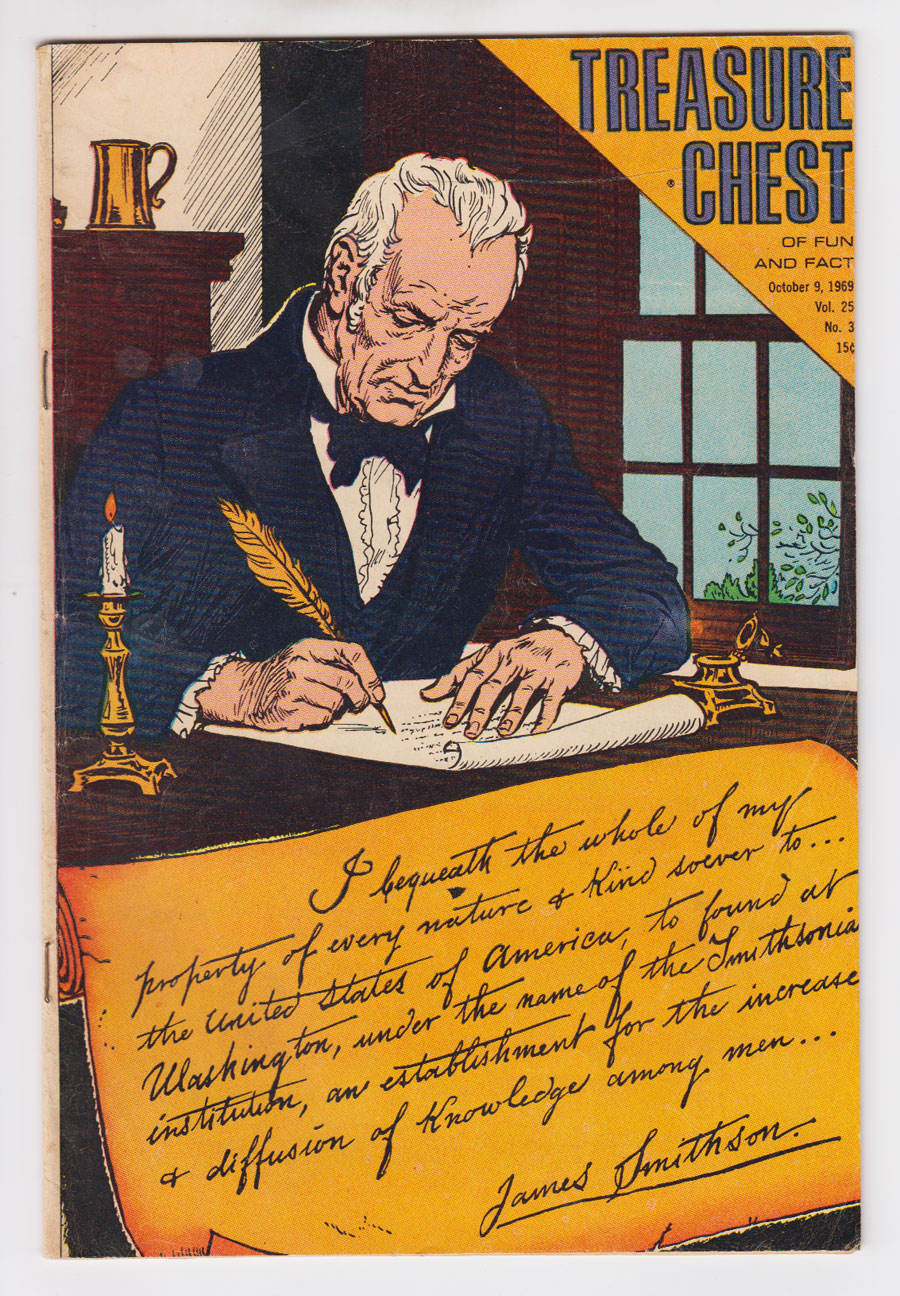 TREASURE
CHEST
®
OF FUN
AND FACT
October 9, 1969
Vol. 25
No. 3
15¢
I bequeath the whole of my
property of every nature & Kind soever to...
the United States of America, to found at
Washington, under the name of the Smithsonia
institution, an establishment for the increase
& diffusion of Knowledge among men...
James Smithson.